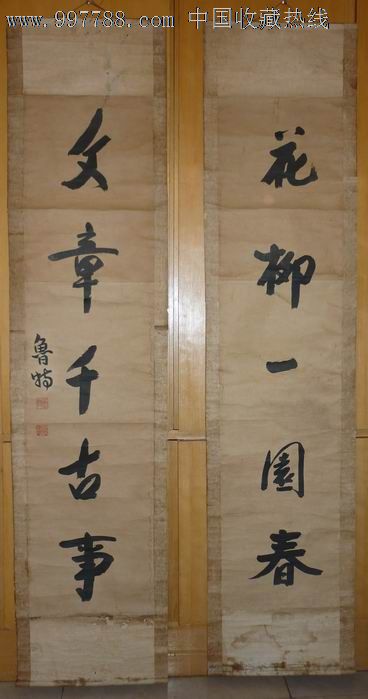 www.997788.com 中国收藏热线
花柳一園春
文章千古事
魯特